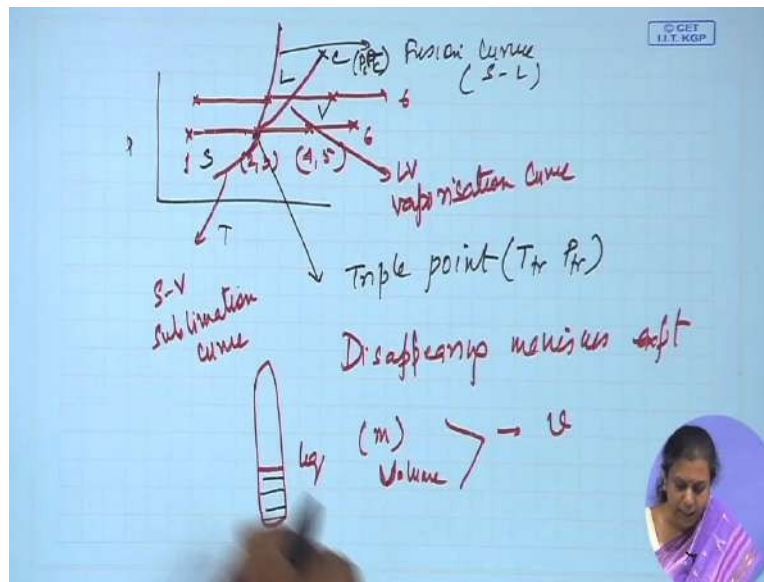 © CET
I.I.T. KGP
C
Fusion Curve
(S-L)
L
V
6
P
1
S
(2,3)
(4,5)
6
LV
vaporisation curve
T
S-V
sublimation
curve
Triple point (Ttr Ptr)
Disappearing meniscus expt
liq
(m)
Volume
v